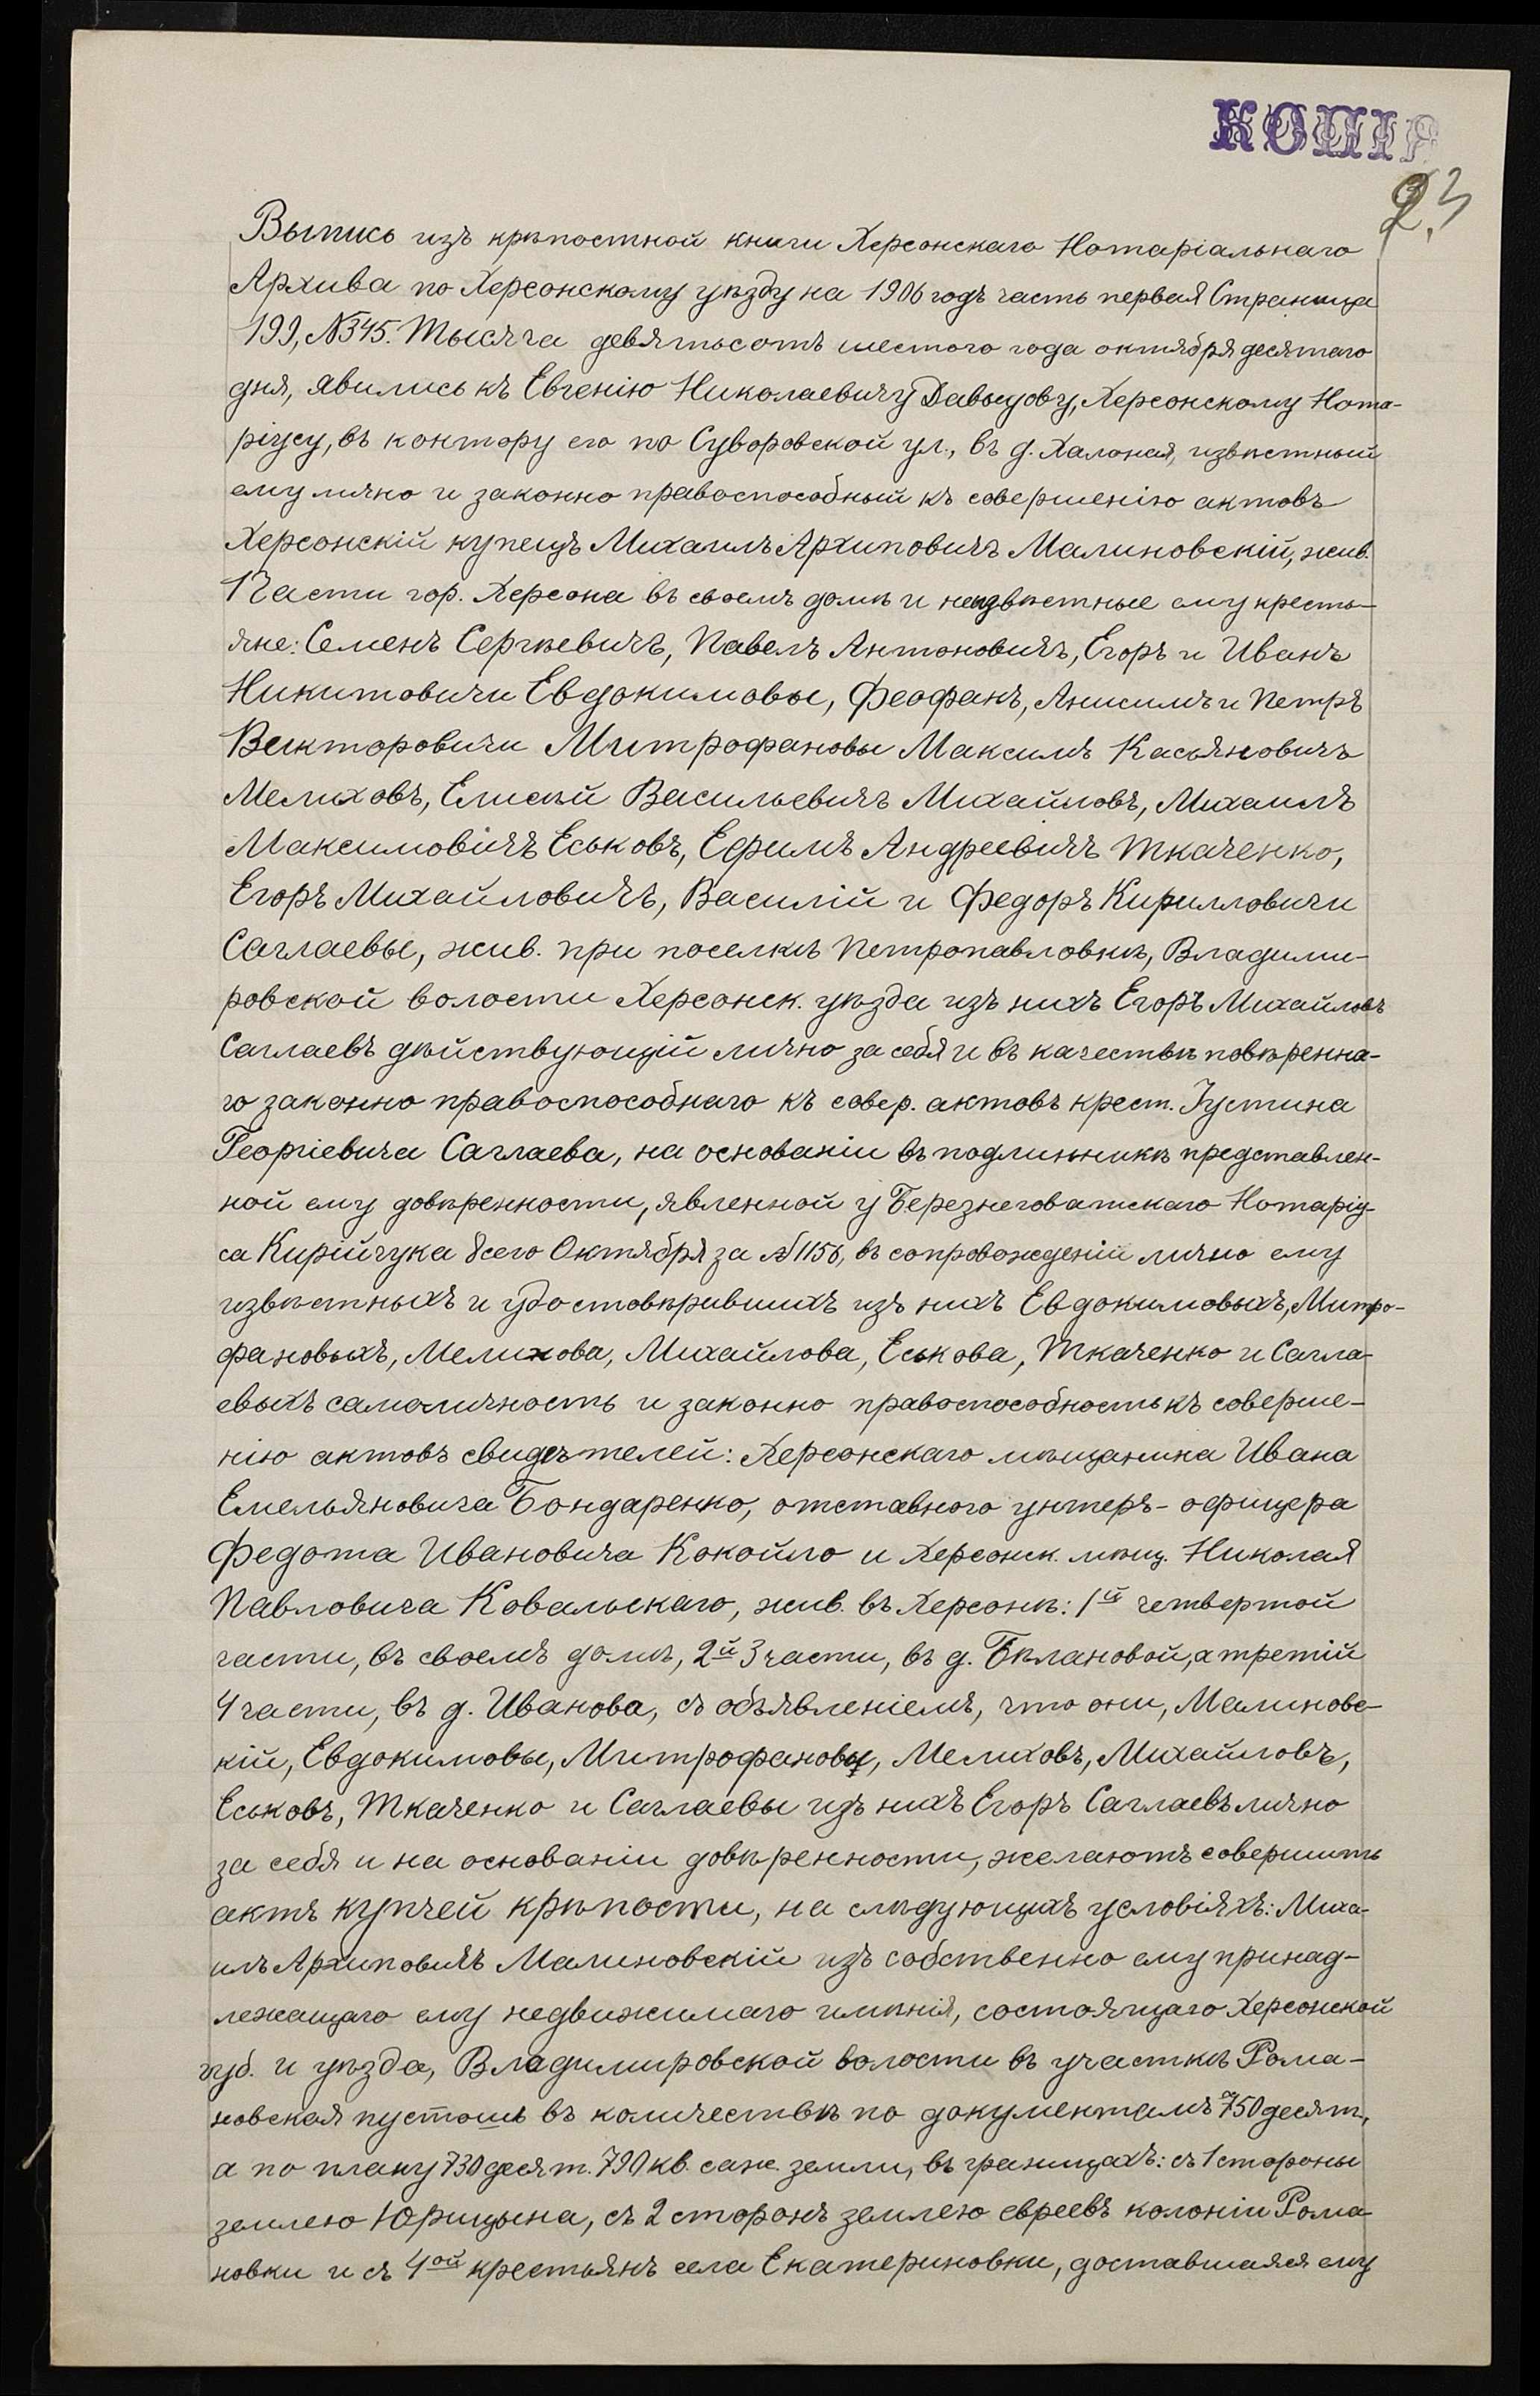 КОПІЯ
23
Выпись изъ крѣпостной книги Херсонскаго Нотаріальнаго
Архива по Херсонскому уѣзду на 1906 годъ часть первая Страница
199, №345. Тысяча девятьсотъ шестого года октября десятаго
дня, явились къ Евгенію Николаевичу Давыдову, Херсонскому Нота-
ріусу, въ контору его по Суворовской ул., въ д. Халоная, извѣстный
ему лично и законно правоспособный къ совершенію актовъ
Херсонскій купецъ Михаилъ Архиповичъ Малиновскій, жив.
1 Части гор. Херсона въ своемъ домѣ и неизвѣстные ему кресть-
яне: Семенъ Сергѣевичъ, Павелъ Антоновичъ, Егоръ и Иванъ
Никитовичи Евдокимовы, Феофанъ, Анисимъ и Петръ
Викторовичи Митрофановы Максимъ Касьяновичъ
Мелиховъ, Елисѣй Васильевичъ Михайловъ, Михаилъ
Максимовичъ Еськовъ, Ефимъ Андреевичъ Ткаченко,
Егоръ Михайловичъ, Василій и Федоръ Кирилловичи
Саглаевы, жив. при поселкѣ Петропавловкѣ, Владими-
ровской волости Херсонск. уѣзда изъ нихъ Егоръ Михайловъ
Саглаевъ дѣйствующій лично за себя и въ качествѣ повѣренна-
го законно правоспособнаго къ совер. актовъ крест. Іустина
Георгіевича Саглаева, на основаніи въ подлинникѣ представлен-
ной ему довѣренности, явленной у Березнеговатскаго Нотаріу-
са Кирійчука 8 сего Октября за №1156, въ сопровожденіи лично ему
извѣстныхъ и удостовѣрившихъ изъ нихъ Евдокимовыхъ, Митро-
фановыхъ, Мелихова, Михайлова, Еськова, Ткаченко и Сагла-
евыхъ самоличность и законно правоспособность къ соверше-
нію актовъ свидѣтелей: Херсонскаго мѣщанина Ивана
Емельяновича Бондаренко, отставного унтеръ-офицера
Федота Ивановича Кокойло и Херсонск. мѣщ. Николая
Павловича Ковальскаго, жив. въ Херсонѣ: 1й четвертой
части, въ своемъ домѣ, 2й 3 части, въ д. Бѣлановой, а третій
4 части, въ д. Иванова, съ объявленіемъ, что они, Малиновс-
кій, Евдокимовы, Митрофановы, Мелиховъ, Михайловъ,
Еськовъ, Ткаченко и Саглаевы изъ нихъ Егоръ Саглаевъ лично
за себя и на основаніи довѣренности, желаютъ совершить
актъ купчей крѣпости, на слѣдующихъ условіяхъ: Миха-
илъ Архиповичъ Малиновскій изъ собственно ему принад-
лежащаго ему недвижимаго имѣнія, состоящаго Херсонской
губ. и уѣзда, Владимировской волости въ участкѣ Рома-
новская пустошь въ количествѣ по документамъ 750 десят.,
а по плану 730 десят. 790 кв. саж. земли, въ границахъ: съ 1 стороны
землею Юрицына, съ 2 сторонъ землею евреевъ колоніи Рома-
новки и съ 4ой крестьянъ села Екатериновки, доставшаяся ему